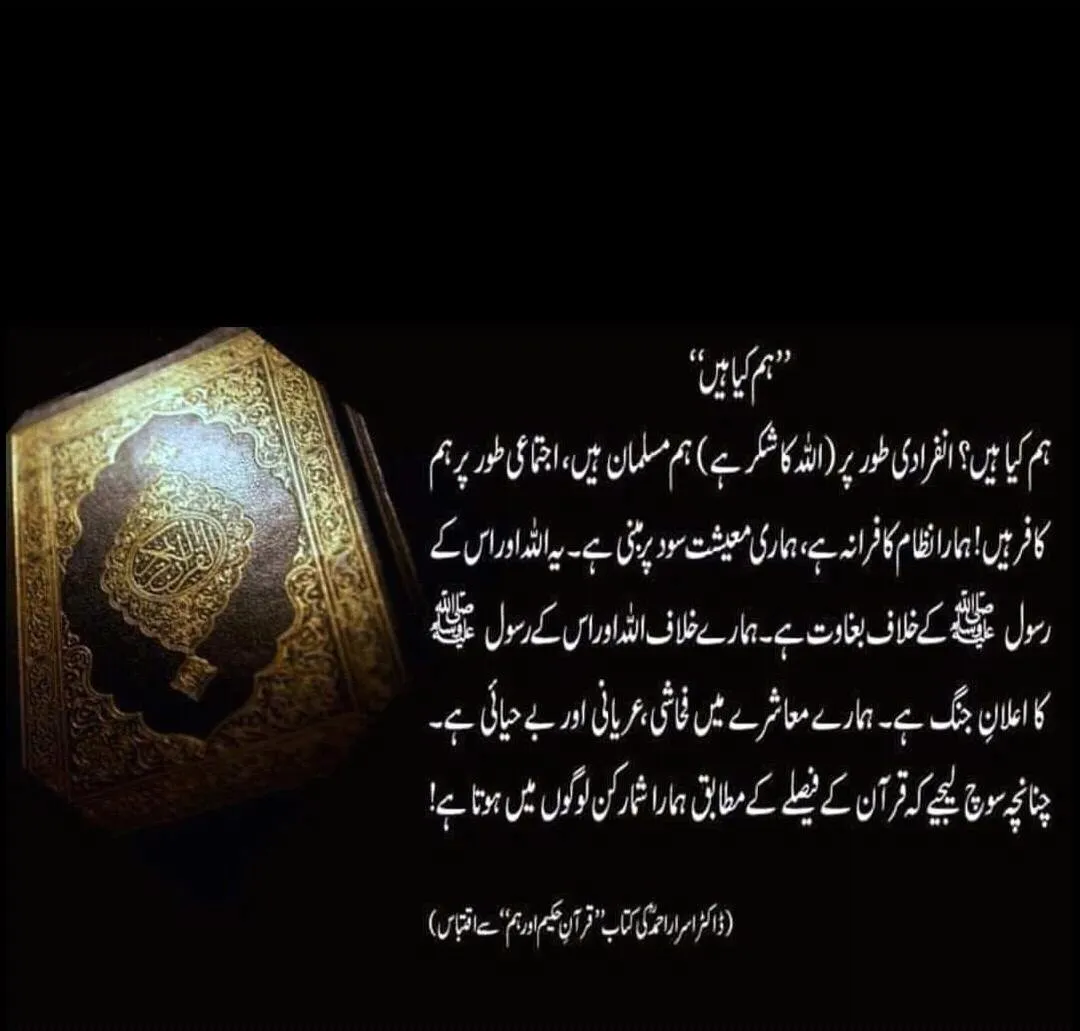 ”ہم کیا ہیں“
ہم کیا ہیں؟ انفرادی طور پر (اللہ کا شکر ہے) ہم مسلمان ہیں، اجتماعی طور پر ہم
کافر ہیں! ہمارا نظام کافرانہ ہے، ہماری معیشت سود پر مبنی ہے۔ یہ اللہ اور اس کے
رسول ﷺ کے خلاف بغاوت ہے۔ ہمارے خلاف اللہ اور اس کے رسول ﷺ
کا اعلانِ جنگ ہے۔ ہمارے معاشرے میں فحاشی، عریانی اور بے حیائی ہے۔
چنانچہ سوچ لیجیے کہ قرآن کے فیصلے کے مطابق ہمارا شمار کن لوگوں میں ہوتا ہے!
(ڈاکٹر اسرار احمدؒ کی کتاب ”قرآنِ حکیم اور ہم“ سے اقتباس)